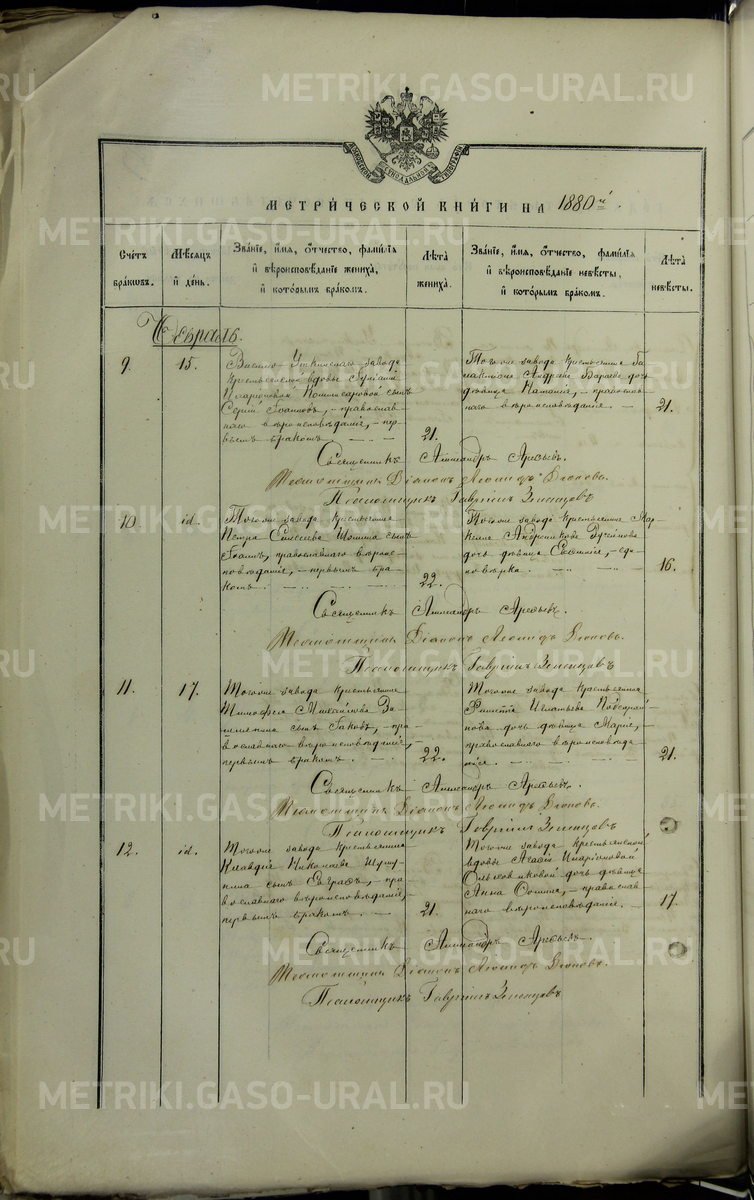 METRIKI.GASO-URAL.RU
МЕТРИ́ЧЕСКОЙ КНИ́ГИ НА 1880й
Счетъ бракѡвъ.
Мѣсяцъ и день.
Званіе, имя, отчество, фамилія и вѣроисповѣданіе жениха, и которымъ бракомъ.
Лѣта жениха.
Званіе, имя, отчество, фамилія и вѣроисповѣданіе невѣсты, и которымъ бракомъ.
Лѣта невѣсты.
Февраль.
9.
15.
Висимо Уткинскаго завода
крестьянской вдовы
Иларіоновой сынъ
Сергій Іоанновъ, – православ-
наго вѣроисповѣданія, – пер-
вымъ бракомъ.
21.
Тогоже завода крестьянина
Андреева дочь
дѣвица Наталія, – православ-
наго вѣроисповѣданія.
21.
Священникъ Александръ Арефьевъ.
Діаконъ Леонидъ
Псаломщикъ Гавріилъ Зеленцовъ
10.
id.
Тогоже завода крестьянина
Петра Елисеева сынъ
Іоаннъ, православнаго вѣроис-
повѣданія, – первымъ бра-
комъ.
22.
Тогоже завода крестьянина Мар-
келла Андроникова
дочь дѣвица Евѳимія, – еди-
новѣрка.
16.
Священникъ Александръ Арефьевъ.
Діаконъ Леонидъ
Псаломщикъ Гавріилъ Зеленцовъ
11.
17.
Тогоже завода крестьянина
Тимоѳея Михайлова
сынъ Іаковъ, – пра-
вославнаго вѣроисповѣданія, –
первымъ бракомъ.
22.
Тогоже завода крестьянина
Филиппа Игнатьева
дочь дѣвица Марія, –
православнаго вѣроисповѣда-
нія.
21.
Священникъ Александръ Арефьевъ.
Діаконъ Леонидъ
Псаломщикъ Гавріилъ Зеленцовъ
12.
id.
Тогоже завода крестьянина
Клавдія Николаева
сынъ Евграфъ, – пра-
вославнаго вѣроисповѣданія, –
первымъ бракомъ.
21.
Тогоже завода крестьянской
вдовы Агафіи Иларіоновой
дочь дѣвица
Анна – православ-
наго вѣроисповѣданія.
17.
Священникъ Александръ Арефьевъ.
Діаконъ Леонидъ
Псаломщикъ Гавріилъ Зеленцовъ